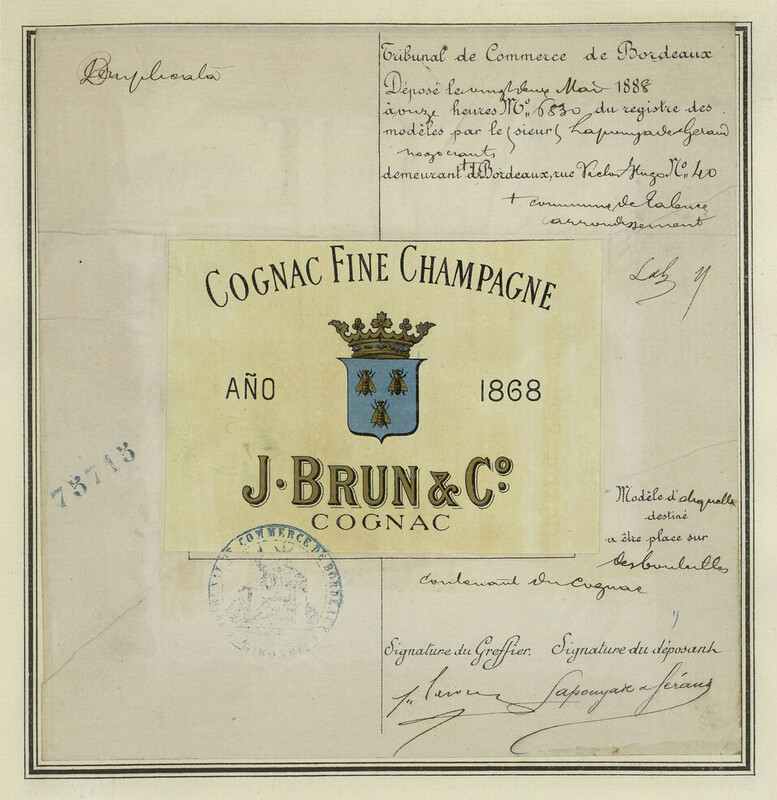 Duplicata
Tribunal de Commerce de Bordeaux
Déposé le vingt deux Mai 1888
à onze heures N.º 6830 du registre des
modèles par le (sieur) Lapouyade & Géraud
négociants
demeurant † à Bordeaux, rue Victor Hugo N.º 40
† commune de Talence
arrondissement
COGNAC FINE CHAMPAGNE
AÑO 1868
J. BRUN & Cº
COGNAC
75715
TRIBUNAL DE COMMERCE DE BORDEAUX
Modèle d'étiquette
destiné
a être placé sur
des bouteilles
contenant du Cognac
Signature du Greffier. Signature du déposant
Lapouyade & Géraud